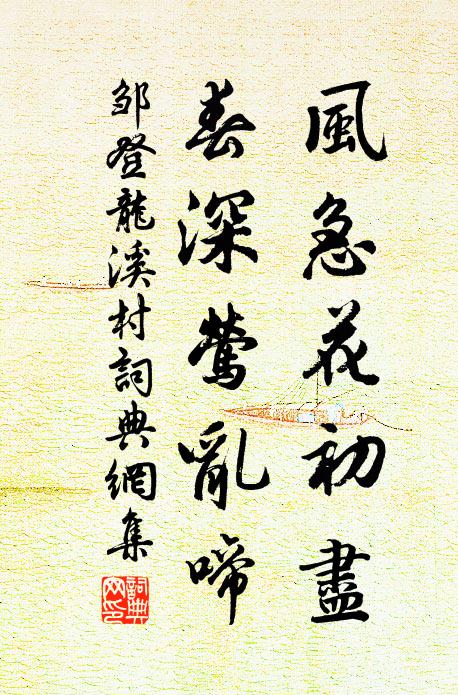 風急花初盡
春深鶯亂啼
鄒登龍溪村詞典網集
詞典
网印